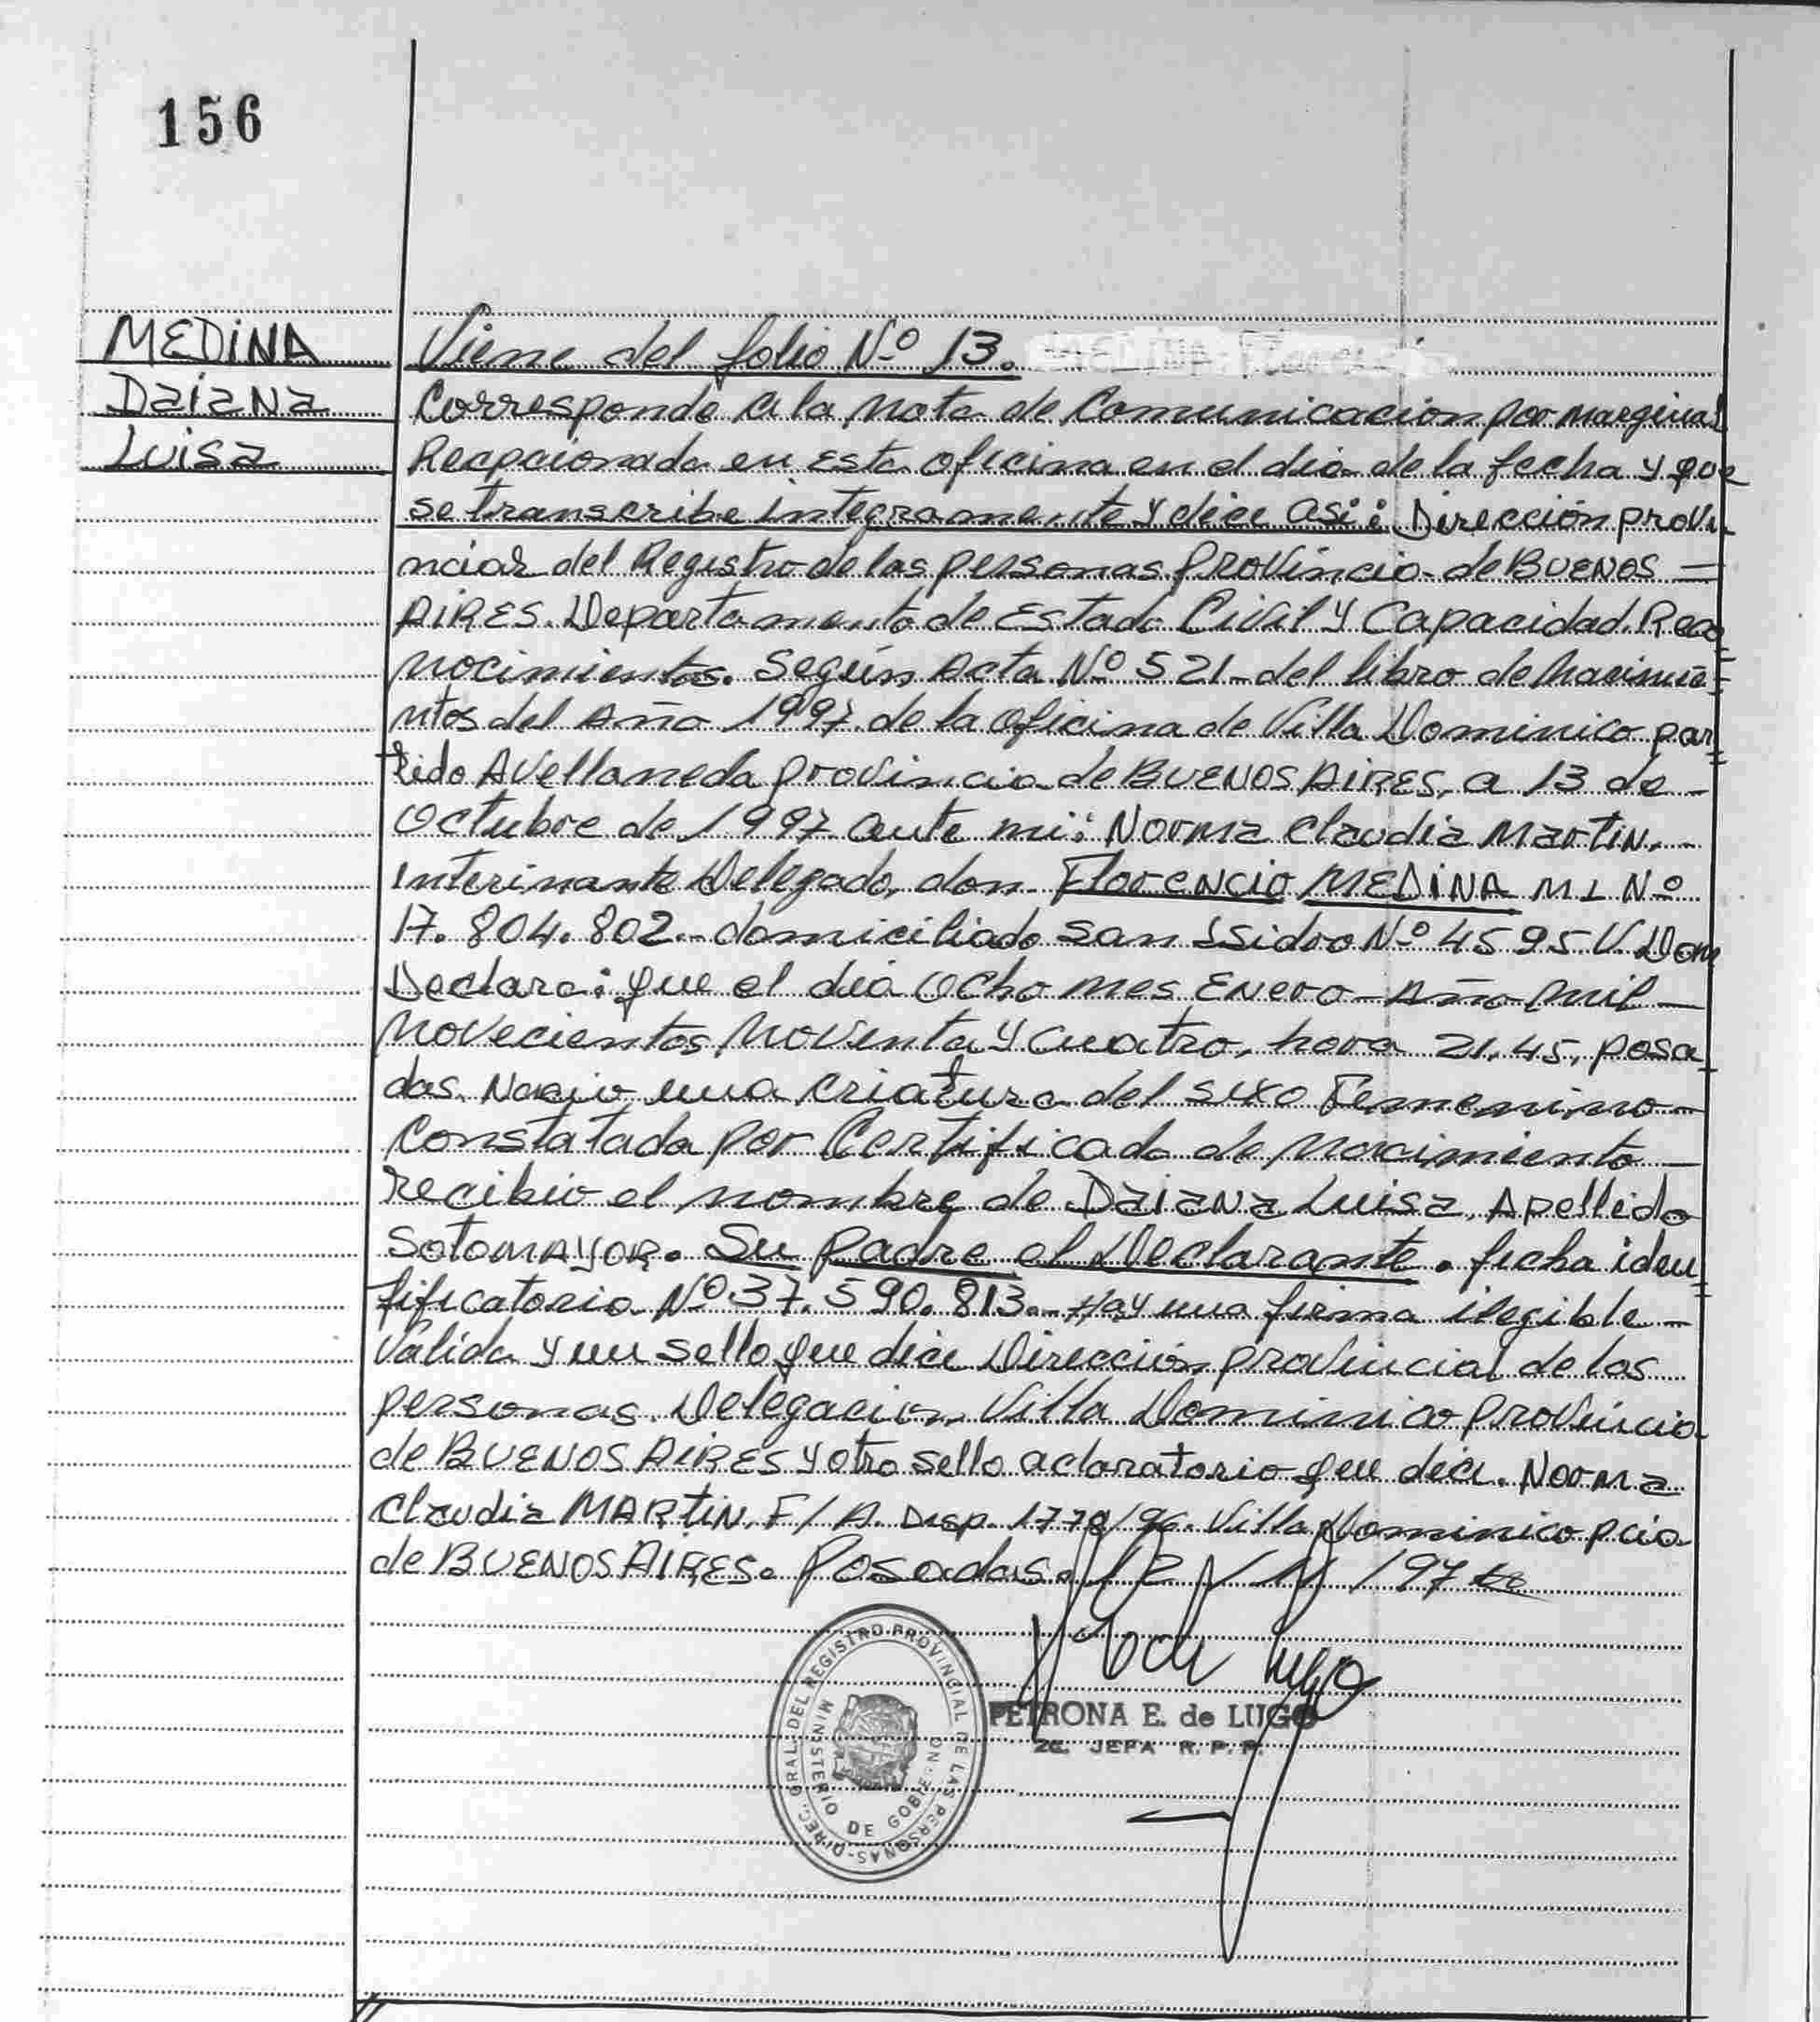 156
MEDINA
Daiana
Luisa
Viene del folio Nº 13.
Corresponde a la Nota de Comunicacion por marginal
Recpcionada en esta oficina en el dia de la fecha y que
se transcribe integramente y dice asi: Dirección provi
ncial del Registro de las personas provincia de BUENOS =
AIRES. Departamento de Estado Civil y Capacidad. Reco
nocimientos. Según Acta Nº 521 - del libro de Nacimie=
ntos del Año 1997 de la oficina de Villa Dominico par=
tido Avellaneda provincia de BUENOS AIRES, a 13 de -
Octubre de 1997 ante mi: Norma Claudia Martin. -
Interinante Delegado, don Florencio MEDINA MI Nº
17.804.802.- domiciliado San Isidro Nº 4595 V. Dom
Declara: que el dia Ocho mes Enero - Año mil -
Novecientos Noventa y cuatro, hora 21,45, posa=
das. Nacio una criatura del sexo Femenino -
Constatada por Certificado de Nacimiento -
recibio el nombre de Daiana Luisa, Apellido
SOTOMAYOR. Su padre el Declarante. ficha iden=
tificatoria Nº 37.590.813.- Hay una firma ilegible -
valida y un sello que dice Dirección provincial de las
personas. Delegacion Villa Dominico provincia
de BUENOS AIRES y otro sello aclaratorio que dice. Norma
Claudia MARTIN. F/A. Disp. 1778/96. Villa Dominico pcia
de BUENOS AIRES. Posadas. 12/11/97
DIREC. GRAL. DEL REGISTRO PROVINCIAL DE LAS PERSONAS
MINISTERIO DE GOBIERNO
PETRONA E. de LUGO
2a. JEFA R. P. P.